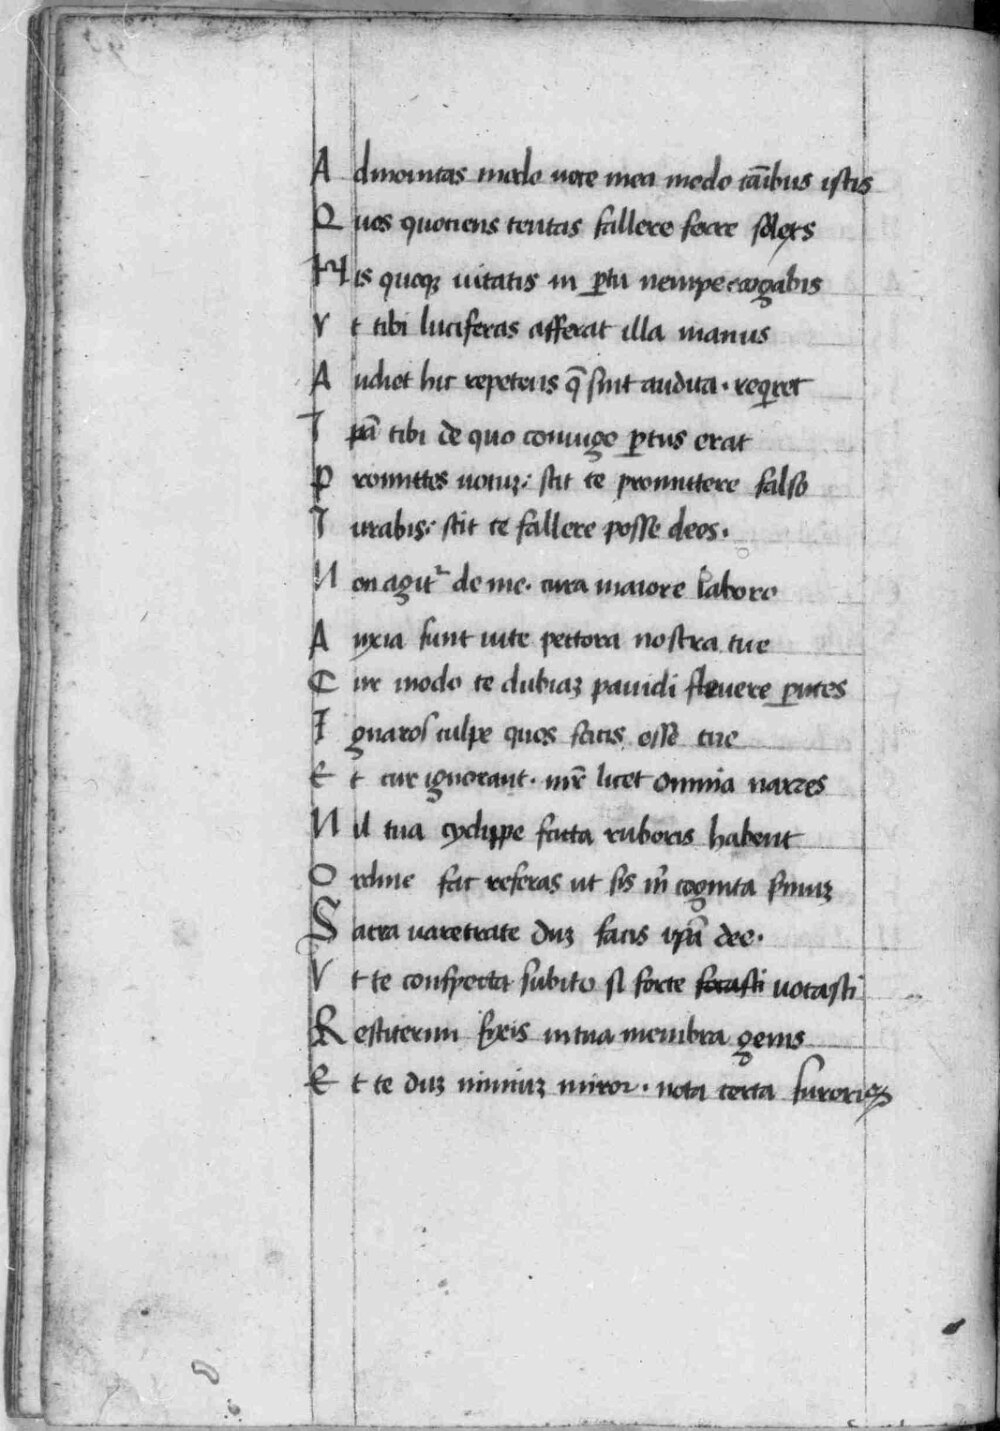 A dmonitas modo uoce mea modo cāibus istis
Q uos quotiens tentas fallere ferre soles
H is quoqꝫ uitatis in ꝑtu nempe rogabis
V t tibi luciferas afferat illa manus
A udiet hic repetens q̄ sint audita · reqͥret
I pā tibi de quo coniuge ꝑtus erat
P romittes uotuꝫ: scit te promittere falso
I urabis: scit te fallere posse deos.
N on agitᷣ de me · cura maiore laboro
A nxia sunt uite pectora nostra tue
C ur modo te dubiaꝫ pauidi fleuere ꝑntes
I gnaros culpe quos facis esse tue
E t cur ignorant · mr̄i licet omnia narres
N il tua cydippe facta ruboris habent
O rdine fac referas ut sis m̄ cognita primuꝫ
S acra varetrate duꝫ facis ip̄a dee.
V t te conspecta subito si forte notasti
R estiterim fixis in tua membra genis
E t te duꝫ nimiuꝫ miror · nota certa furoris